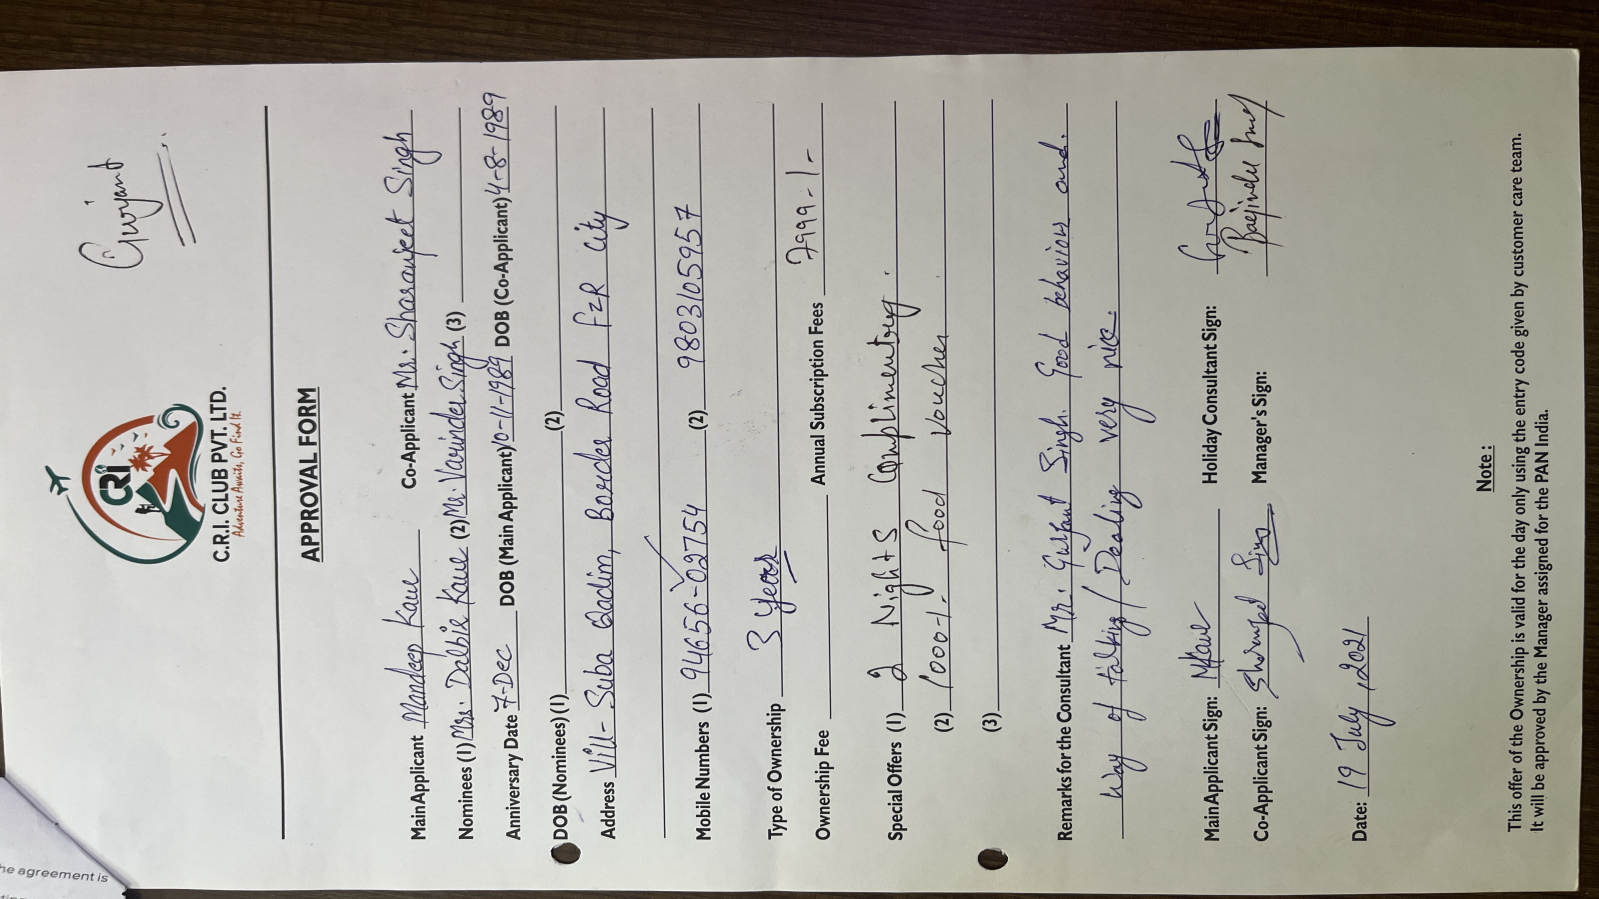 Gurjant
CRI
C.R.I. CLUB PVT. LTD.
Adventure Awaits, Go Find It.
APPROVAL FORM
Main Applicant Mandeep Kaur Co-Applicant Mr. Sharanjeet Singh
Nominees (1) Mrs. Dalbir Kaur (2) Mr. Varinder Singh (3)
Anniversary Date 7-Dec DOB (Main Applicant) 10-11-1989 DOB (Co-Applicant) 4-8-1989
DOB (Nominees) (1) (2)
Address Vill- Suba Qadim, Border Road FZR City
Mobile Numbers (1) 94656-02754 (2) 9803105957
Type of Ownership 3 Year
Ownership Fee Annual Subscription Fees 7999-/-
Special Offers (1) 2 Nights Complimentry.
(2) 1000-/- food voucher
(3)
Remarks for the Consultant Mr. Gurjant Singh. Good behaviour and.
Way of talking / Dealing very nice.
Main Applicant Sign: MKaur Holiday Consultant Sign:
Co-Applicant Sign: Manager's Sign:
Date: 19 July, 2021
Note :
This offer of the Ownership is valid for the day only using the entry code given by customer care team.
It will be approved by the Manager assigned for the PAN India.
he agreement is